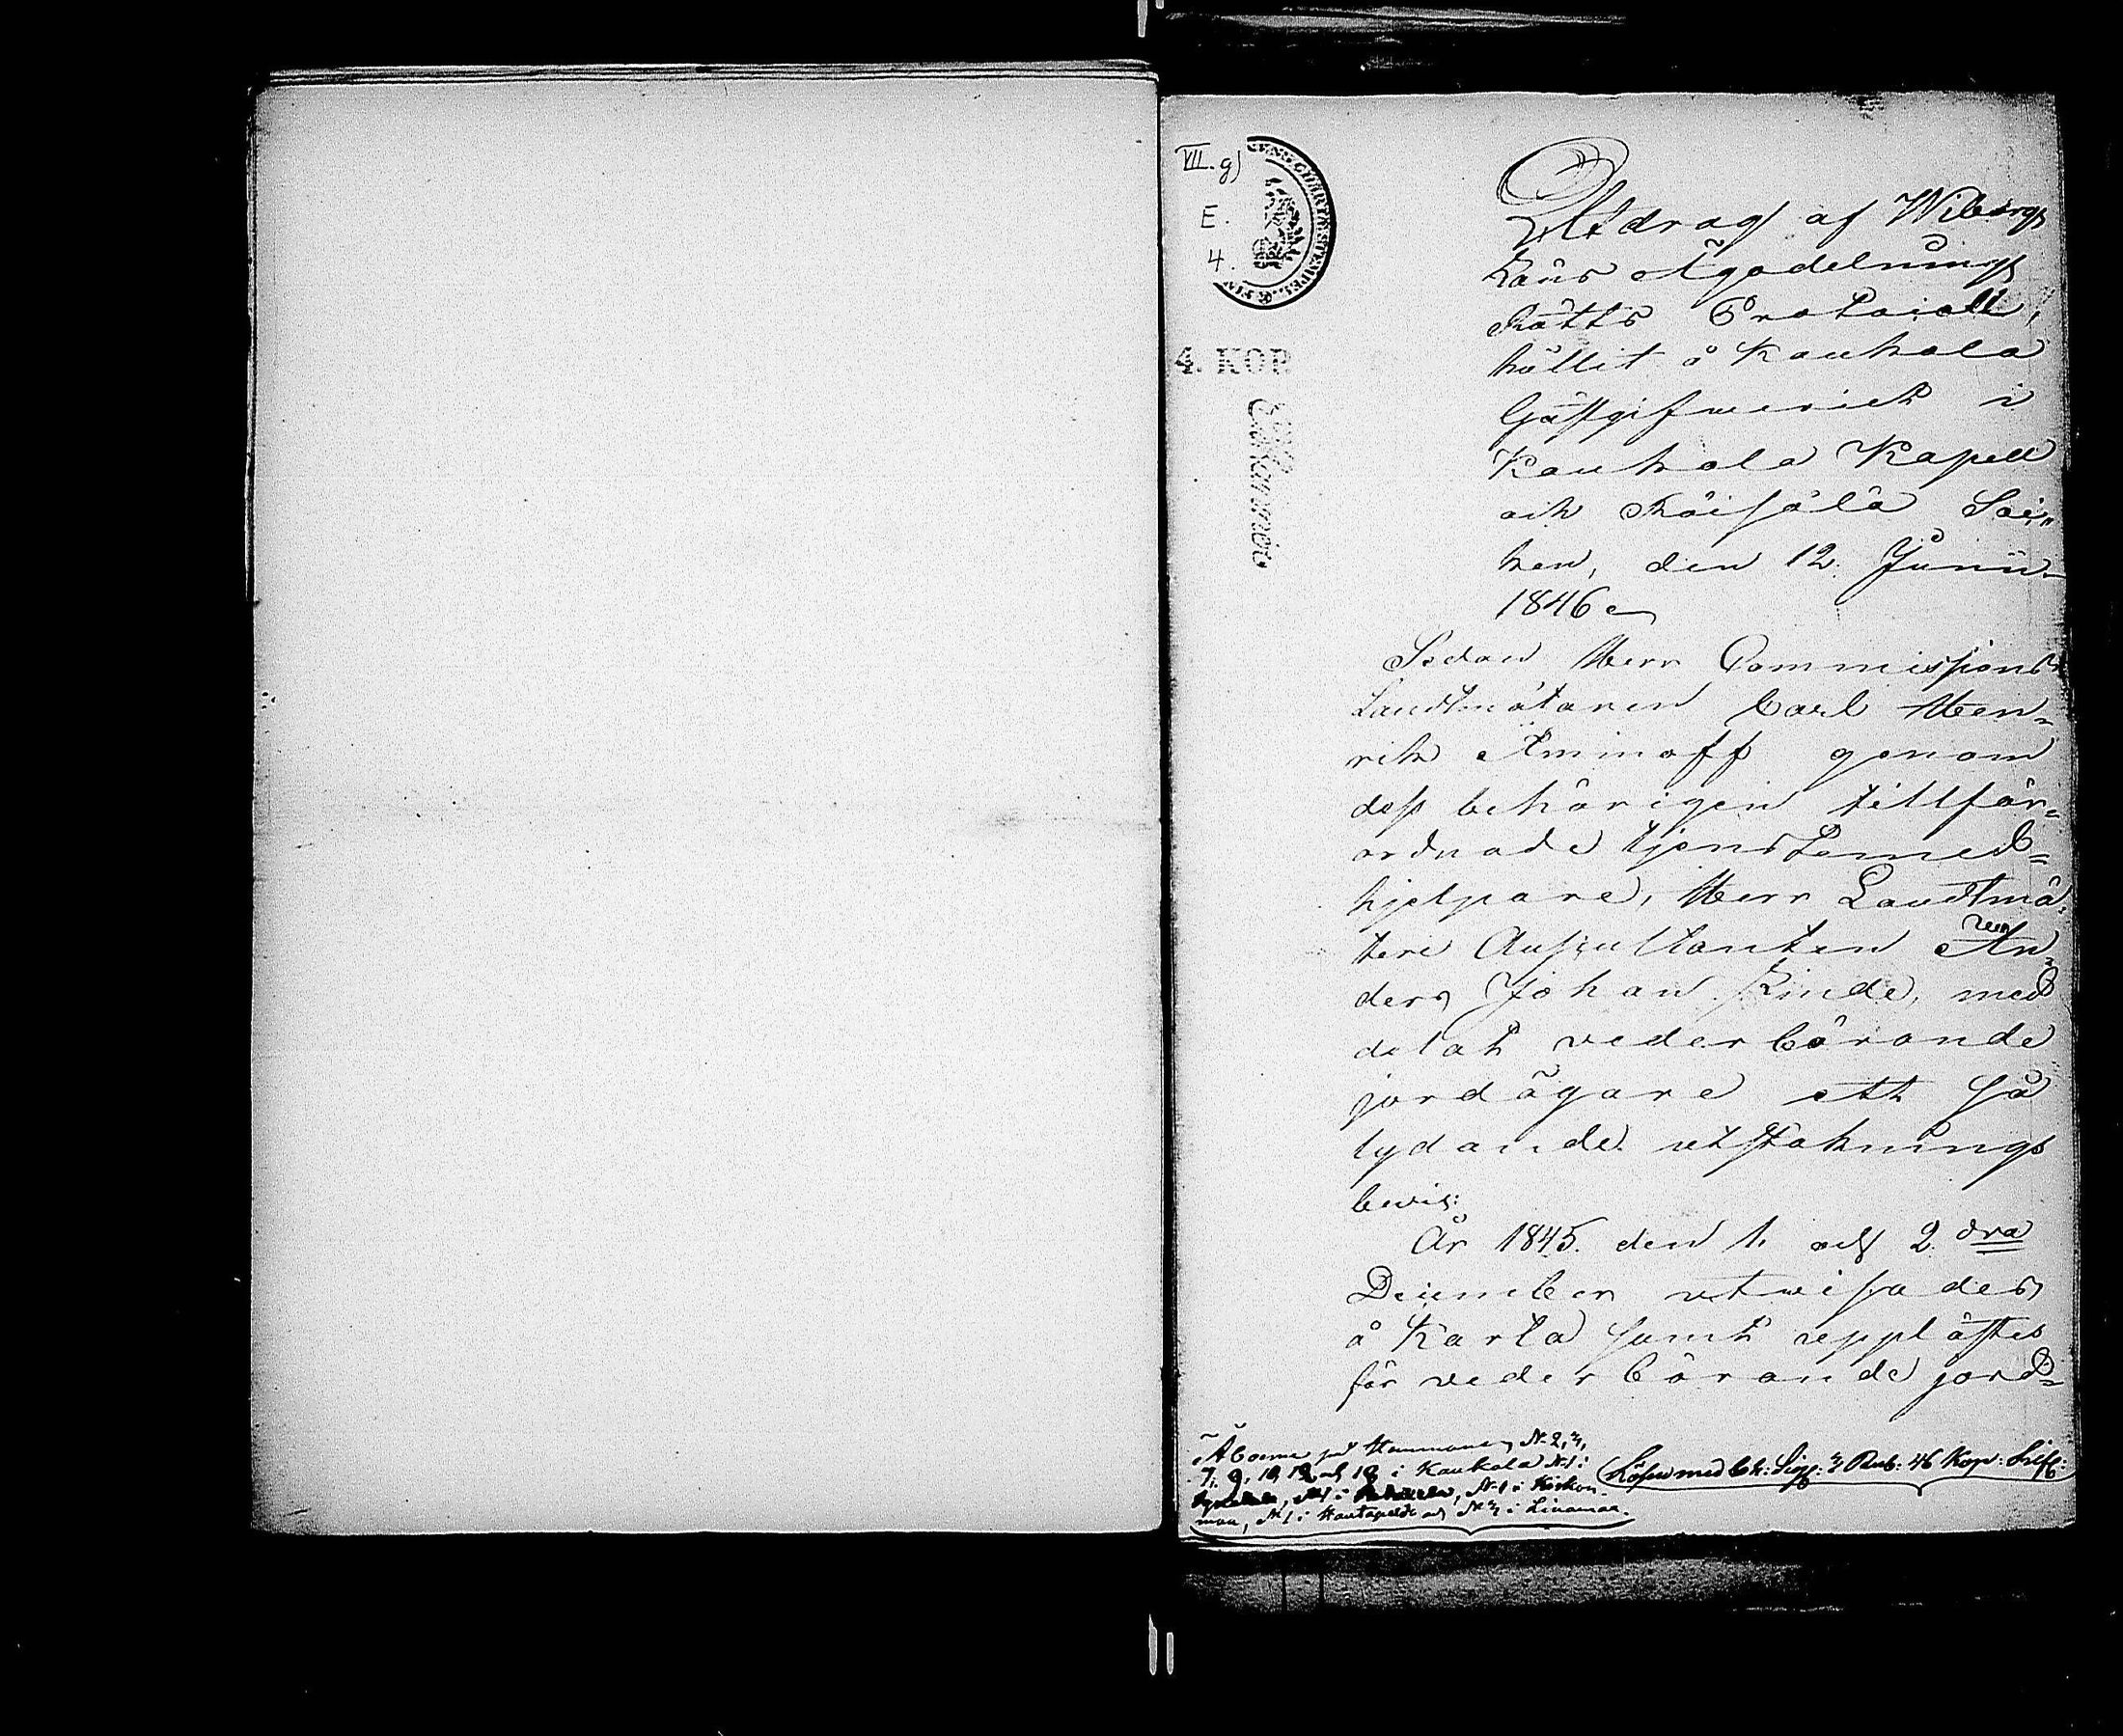 VII. g)
E.
4.
4. KOP.
Utdrag af Wiborgs
Läns Ägodelnings
Rätts Protocoll,
hållit å Kaukola
Gästgifweriet i
Kaukola Kapell
och Räisälä Soc„
ken, den 12. Junii
1846.
Sedan Herr Commissions
Landtmätaren Carl Hen„
rik Aminoff genom
dess behörigen tillför„
ordnade tjenstemed„
hjelpare, Herr Landtmä„
teri Auscultanten An„
ders Johan Linde, med
delat vederbörande
jordägare ett så
lydande utstaknings
bevis:
År 1845. den 1. och 2. dra
December utwisades
å Karta samt upplästes
för vederbörande jord„
Åboerne på Hemmanen N. 2, 3,
7, 9, 10, 12 och 18 i Kaukola N. 1 i
N. 1 i Kiskon„
maa, N. 1 i Hautapelto och N. 3 i Linamaa.
Lösen med Ch: Sig: 3 Rub: 46 Kop: Silf: